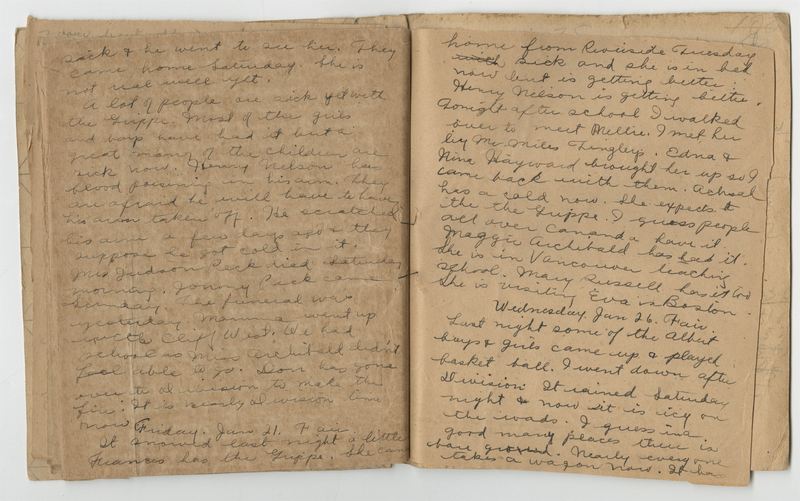 sick & he went to see her. They
came home Saturday. She is
not real well yet.
A lot of people are sick yet with
the Grippe. Most of the girls
and boys have had it but a
great many of the children are
sick now. Henry Nelson has
blood poisoning in his arm. They
are afraid he will have to have
his arm taken off. He scratched
his arm a few days ago & they
suppose he got cold in it.
Mrs Judson Peck died Saturday
morning. Jonny Peck came
Sunday. The funeral was
yesterday. Mamma went up
with Clif West. We had
school as Miss Archibald didn't
feel able to go. Leon has gone
over to Division to make the
fire. It is nearly Division time
now. Friday. Jan 21. Fair.
It snowed last night a little
Frances has the Grippe. She came
home from Riverside Tuesday
sick and she is in bed
now but is getting better.
Henry Nelson is getting better.
Tonight after school I walked
over to meet Mellie. I met her
by Mr. Miles Tingleys. Edna &
Nina Hayward brought her up so I
came back with them. Achsal
has a cold now. She expects it
the the Grippe. I guess people
all over Cananda have it.
Maggie Archibald has had it.
She is in Vancouver teaching
school. Mary Russell has it too
She is visiting Eva in Boston.
Wednesday, Jan 26. Fair.
Last night some of the Albert
boys & girls came up & played
basket ball. I went down after
Division. It rained Saturday
night & now it is icy on
the roads. I guess in a
good many places there is
bare ground. Nearly everyone
takes a wagon now. It has